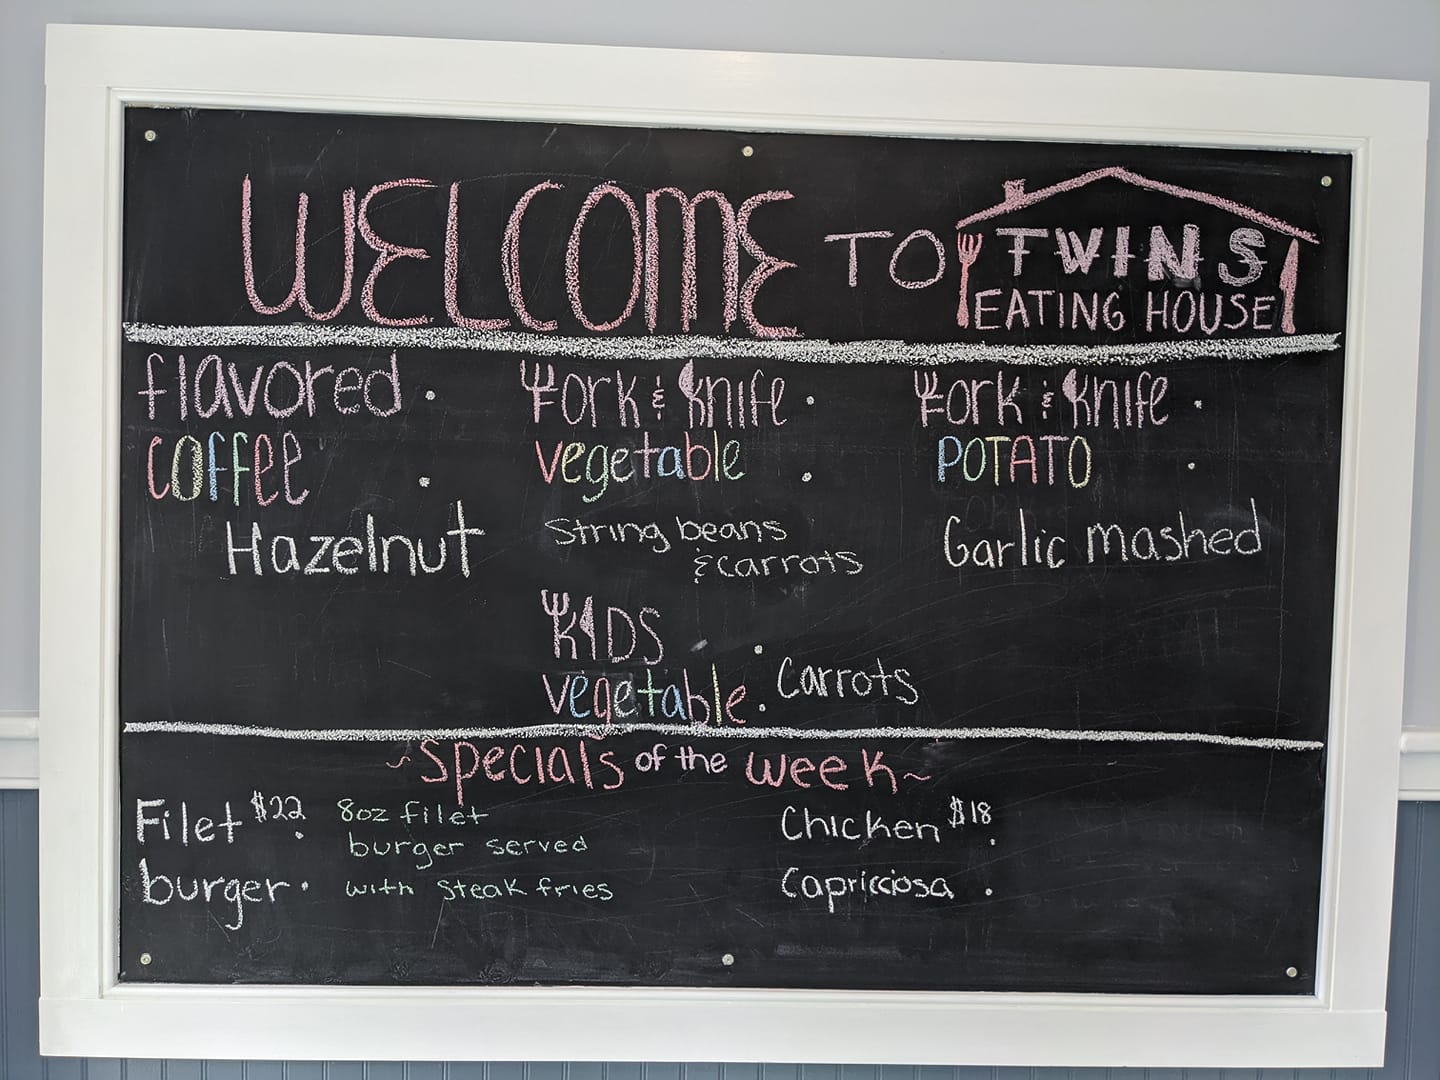 WELCOME TO TWINS
EATING HOUSE
flavored
coffee
Hazelnut
Fork & Knife
vegetable
String beans
& carrots
Fork & Knife
POTATO
Garlic mashed
KIDS
vegetable
Carrots
~Specials of the week~
Filet $22
burger
8oz filet
burger served
with steak fries
Chicken $18
Capricciosa